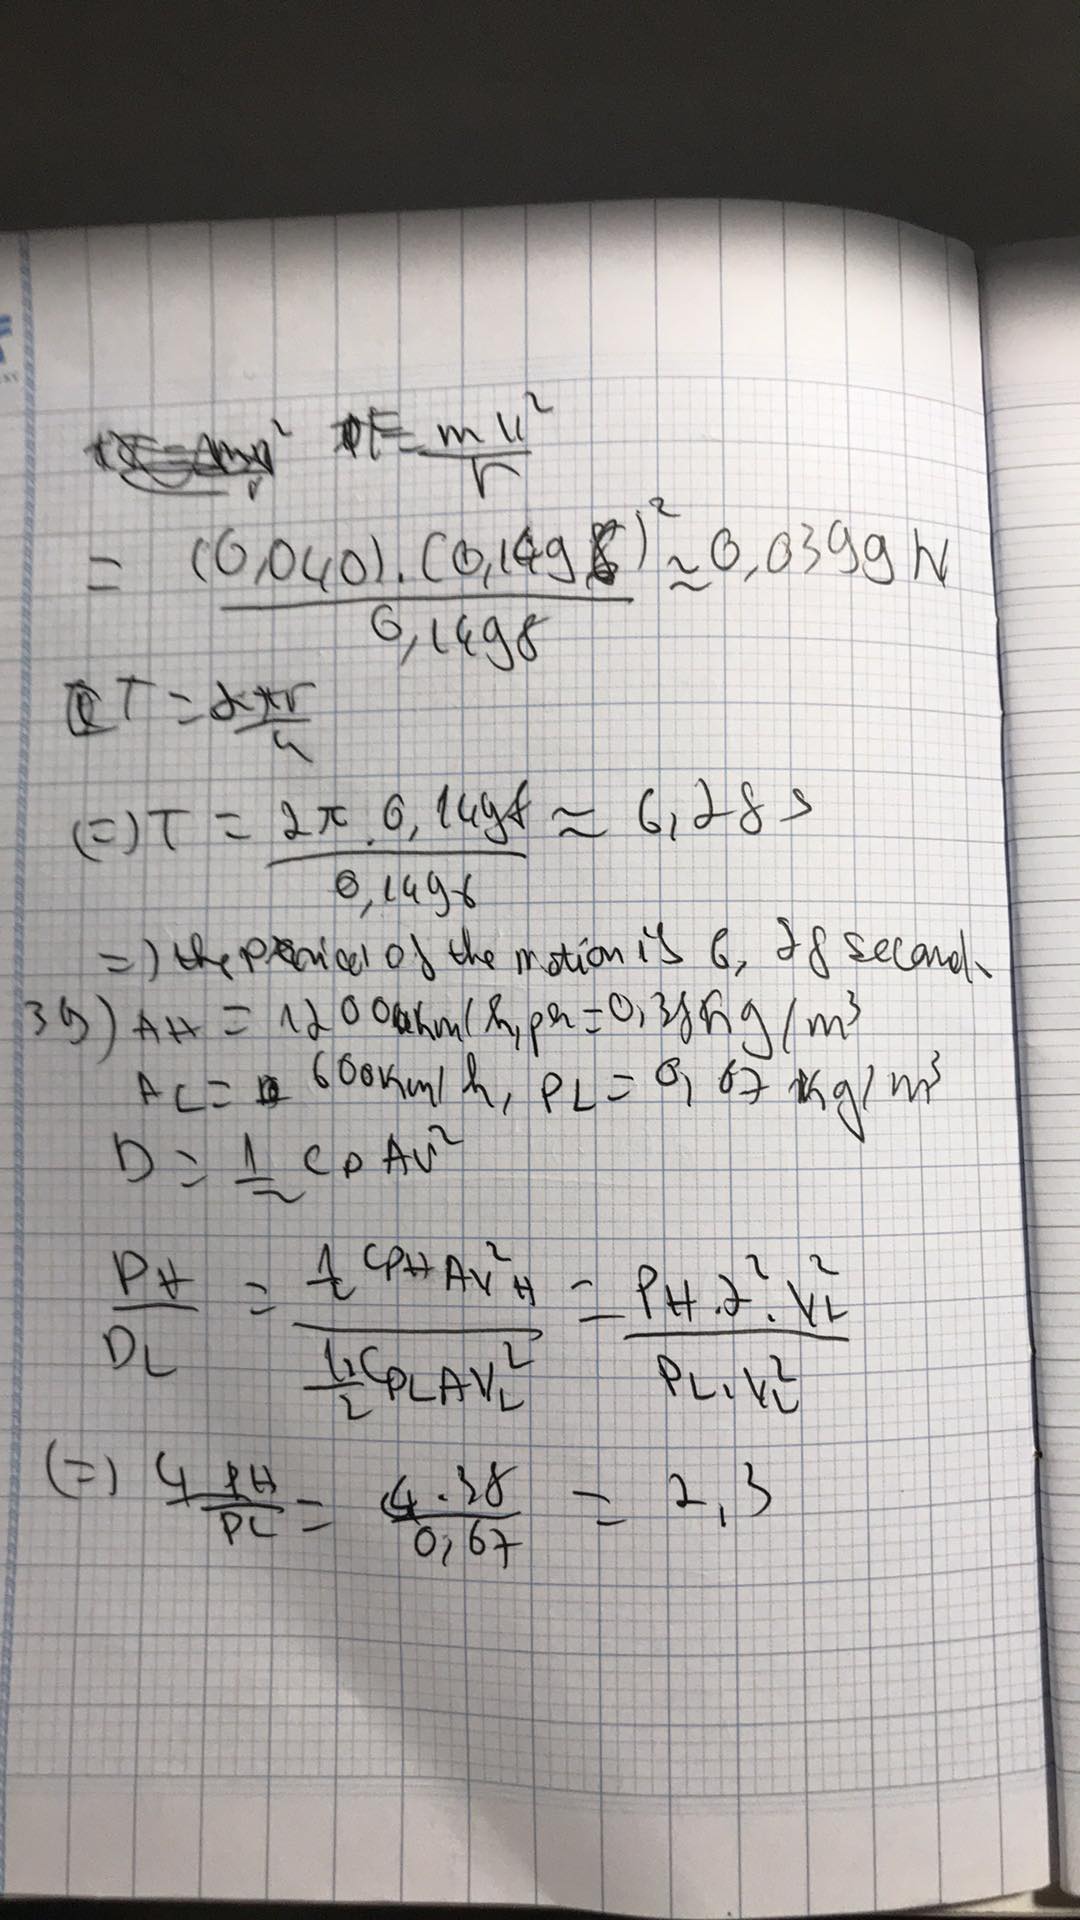 F = mv²/r
= (0,040).(0,1498)²/0,1498 ≈ 0,0399 N
T = 2πr/v
(=) T = 2π.0,1498/0,1498 ≈ 6,28 s
=) the period of the motion is 6, 28 second
39) AH = 1200km/h, ρh = 0,38Kg/m³
AL = 600Km/h, ρL = 0,67 kg/m³
D = 1/2 CρAv²
DH/DL = 1/2 CρHAv²H / 1/2 CρLAVL² = ρH.2².VL² / ρL.VL²
(=) 4 ρH/ρL = 4.38/0,67 = 2,3